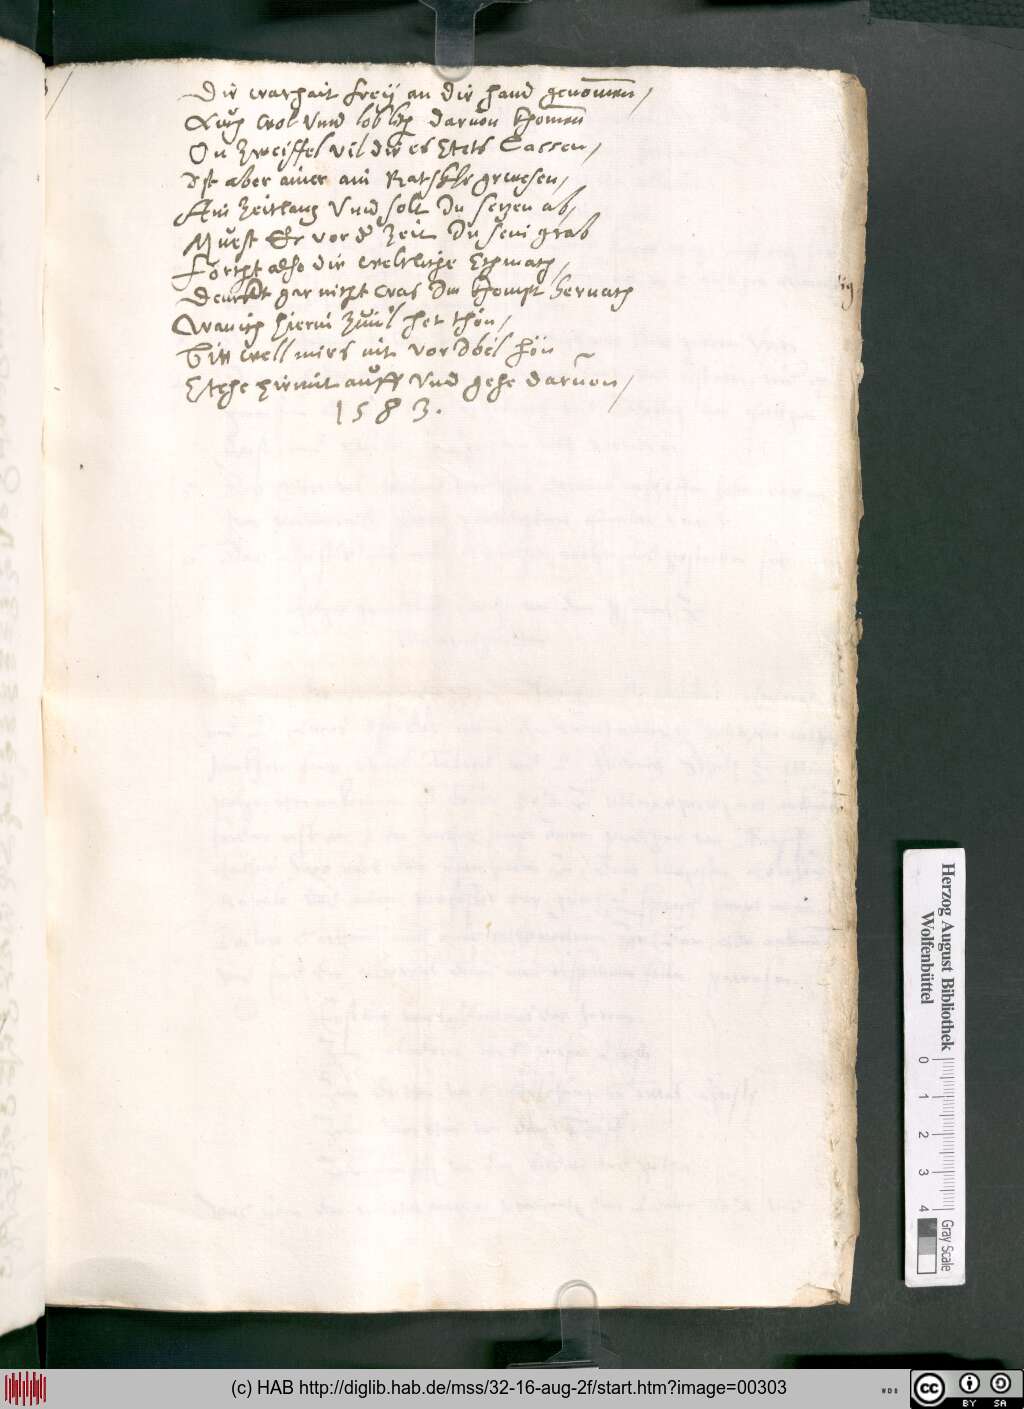 Die warhait freÿ an die hand genommen,
Auch wol vnnd loblich daruon khommen
On Zweiffel vil die es stets lassen,
Ist aber ainer ain Rathsher gewesen,
Ain Zeitlang Vnnd solt Du setzen ab,
Muest Er vor der Zeit Jn sein grab
Förcht also die weltliche Schmach,
Denckht gar nicht was Jm khompt hernach
Wan ich hierin Zuuil het thon,
Bitt well mirs nit vor Übel hon
Stehe hiemit auff Vnd gehe daruon,
1583.
Herzog August Bibliothek
Wolfenbüttel
0 1 2 3 4
Gray Scale
(c) HAB http://diglib.hab.de/mss/32-16-aug-2f/start.htm?image=00303
WDB
cc BY SA